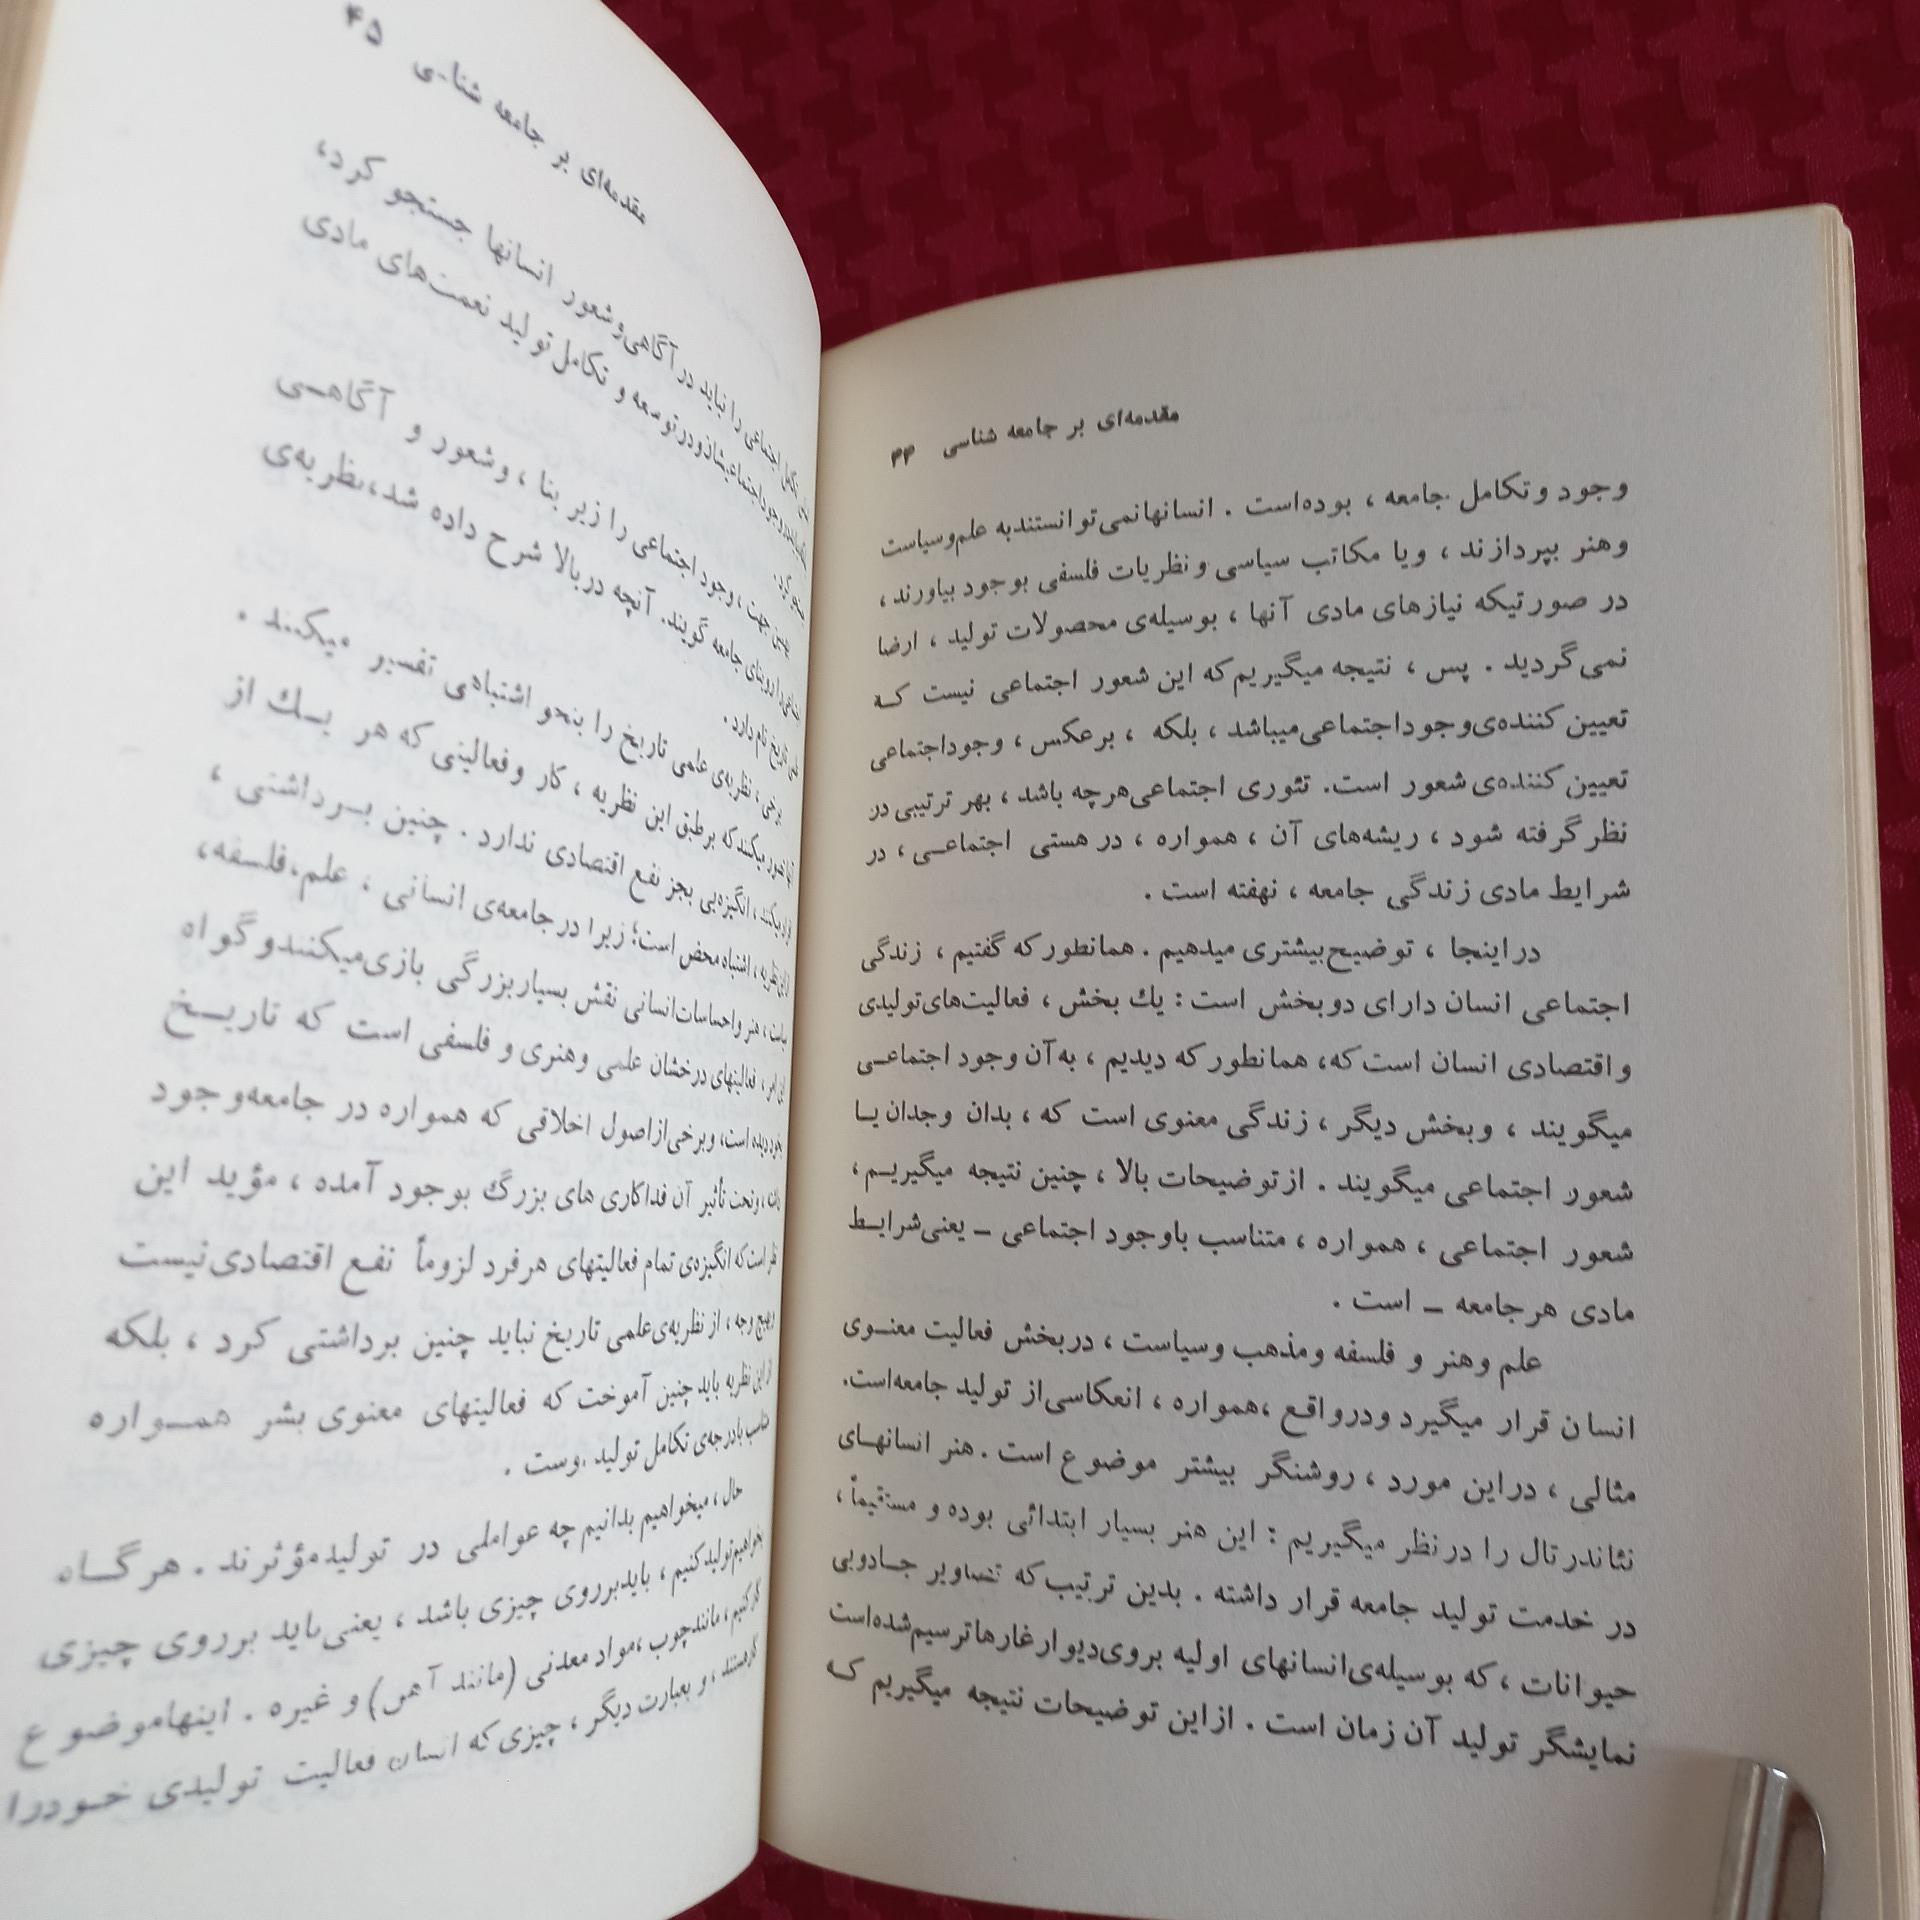 مقدمه‌ای بر جامعه شناسی ۴۴
وجود و تکامل جامعه ، بوده‌است . انسانها نمی‌توانستند به علم و سیاست
و هنر بپردازند ، و یا مکاتب سیاسی و نظریات فلسفی بوجود بیاورند ،
در صورتیکه نیازهای مادی آنها ، بوسیله‌ی محصولات تولید ، ارضا
نمی‌گردید . پس ، نتیجه میگیریم که این شعور اجتماعی نیست که
تعیین کننده‌ی وجود اجتماعی میباشد ، بلکه ، برعکس ، وجود اجتماعی
تعیین کننده‌ی شعور است. تئوری اجتماعی هرچه باشد ، بهر ترتیبی در
نظر گرفته شود ، ریشه‌های آن ، همواره ، در هستی اجتماعی ، در
شرایط مادی زندگی جامعه ، نهفته است .
در اینجا ، توضیح بیشتری میدهیم . همانطور که گفتیم ، زندگی
اجتماعی انسان دارای دو بخش است : یك بخش ، فعالیت‌های تولیدی
و اقتصادی انسان است که، همانطور که دیدیم ، به آن وجود اجتماعی
میگویند ، و بخش دیگر ، زندگی معنوی است که ، بدان وجدان یا
شعور اجتماعی میگویند . از توضیحات بالا ، چنین نتیجه میگیریم،
شعور اجتماعی ، همواره ، متناسب با وجود اجتماعی ـ یعنی شرایط
مادی هر جامعه ـ است .
علم و هنر و فلسفه و مذهب و سیاست ، در بخش فعالیت معنوی
انسان قرار میگیرد و در واقع ، همواره ، انعکاسی از تولید جامعه است.
مثالی ، در این مورد ، روشنگر بیشتر موضوع است . هنر انسانهای
نئاندرتال را در نظر میگیریم : این هنر بسیار ابتدائی بوده و مستقیماً ،
در خدمت تولید جامعه قرار داشته . بدین ترتیب که تصاویر جادویی
حیوانات ، که بوسیله‌ی انسانهای اولیه بروی دیوار غارها ترسیم شده است
نمایشگر تولید آن زمان است . از این توضیحات نتیجه میگیریم ک
مقدمه‌ای بر جامعه شناسی ۴۵
تکامل اجتماعی را نباید در آگاهی و شعور انسانها جستجو کرد،
وجود اجتماعیشان و در توسعه و تکامل تولید نعمت‌های مادی
کرد.
جهت ، وجود اجتماعی را زیر بنا ، و شعور و آگاهی
را روبنای جامعه گویند. آنچه در بالا شرح داده شد، نظریه‌ی
تاریخ نام دارد .
برخی ، نظریه‌ی علمی تاریخ را بنحو اشتباهی تفسیر میکنند .
تصور میکنند که بر طبق این نظریه ، کار و فعالیتی که هر یك از
انگیزه‌یی بجز نفع اقتصادی ندارد . چنین برداشتی ،
نظریه ، اشتباه محض است؛ زیرا در جامعه‌ی انسانی ، علم، فلسفه،
هنر و احساسات انسانی نقش بسیار بزرگی بازی میکنند و گواه
این امر ، فعالیتهای درخشان علمی و هنری و فلسفی است که تاریخ
بخود دیده است، و برخی از اصول اخلاقی که همواره در جامعه وجود
و تحت تأثیر آن فداکاری های بزرگ بوجود آمده ، مؤید این
است که انگیزه‌ی تمام فعالیتهای هر فرد لزوماً نفع اقتصادی نیست
وجه ، از نظریه‌ی علمی تاریخ نباید چنین برداشتی کرد ، بلکه
از این نظریه باید چنین آموخت که فعالیتهای معنوی بشر همواره
با درجه‌ی تکامل تولید اوست .
حال ، میخواهیم بدانیم چه عواملی در تولید مؤثرند . هر گاه
بخواهیم تولید کنیم ، باید بر روی چیزی باشد ، یعنی باید بر روی چیزی
کار کنیم ، مانند چوب ، مواد معدنی (مانند آهن) و غیره . اینها موضوع
کار هستند ، و بعبارت دیگر ، چیزی که انسان فعالیت تولیدی خود را